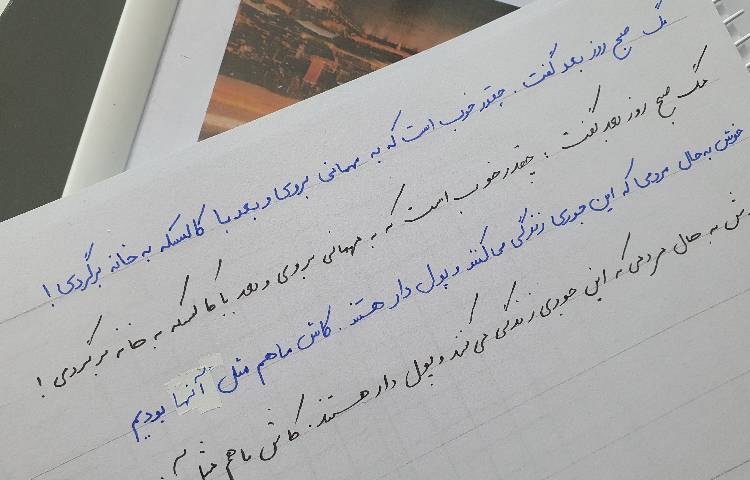 مگ صبح روز بعد گفت. چقدر خوب است که به مهمانی بروی و بعد با کالسکه به خانه برگردی!
مگ صبح روز بعد گفت: چقدر خوب است که به مهمانی بروی و بعد با کالسکه به خانه برگردی!
خوش به حال مردمی که این جوری زندگی می‌کنند و پول دار هستند. کاش ما هم مثل آنها بودیم
به حال مردمی که این جوری زندگی می کنند و پول دار هستند. کاش ما هم